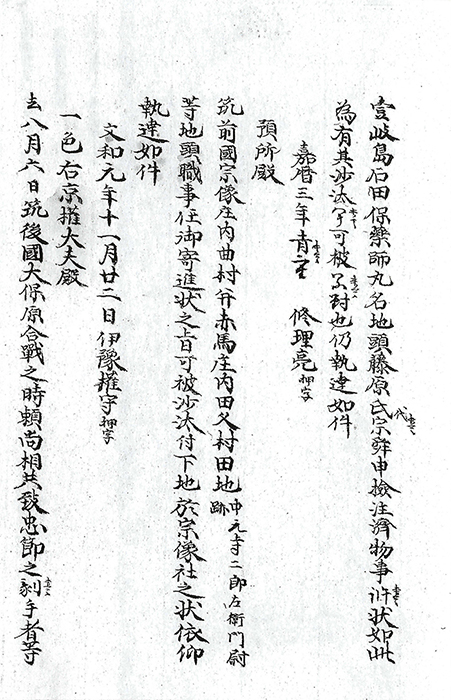 壹岐島石田保藥師丸名地頭藤原氏代宗舜申檢注濟物事訴状如此
為有其沙汰可被対也仍執達如件
嘉暦三年青 修理亮押字
預所殿
筑前國宗像庄内曲村并赤馬庄内田久村田地
跡
中元寺二郎左衛門尉
等地頭職事任御寄進状之旨可被沙汰付下地於宗像社之状依仰
執達如件
文和元年十一月廿二日伊豫權守押字
一色右京權大夫殿
去八月六日筑後國大保原合戰之時頼尚相共致忠節之刻手者等